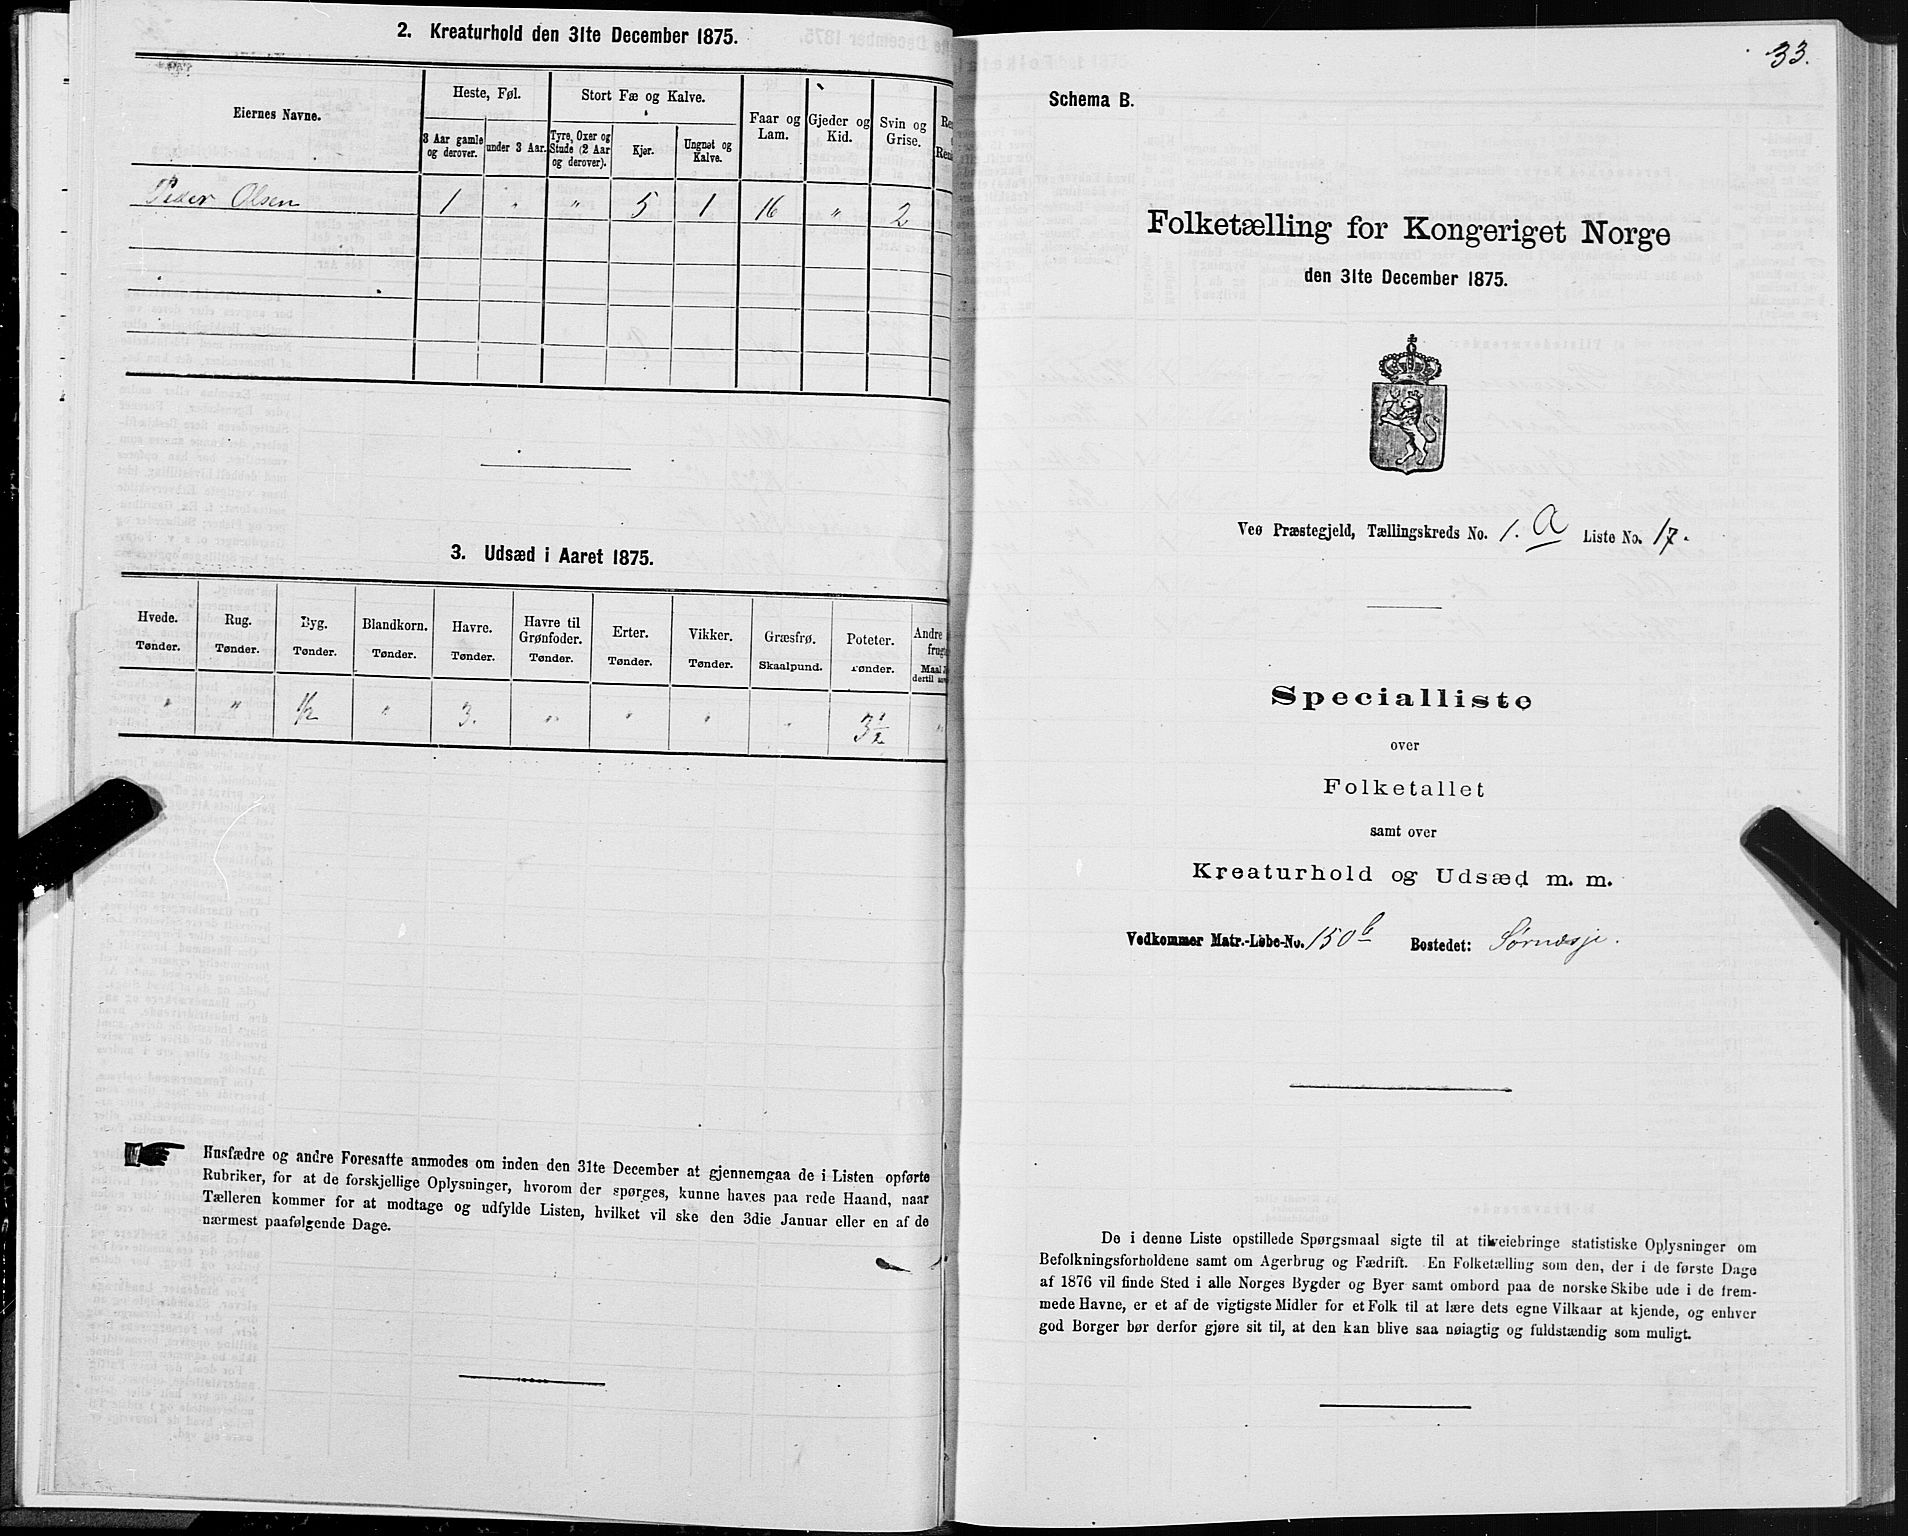 2. Kreaturhold den 31te December 1875.
Eiernes Navne.
Heste, Føl.
Stort Fæ og Kalve.
Faar og Lam.
Gjeder og Kid.
Svin og Grise.
3 Aar gamle og derover.
under 3 Aar.
Tyre, Oxer og Stude (2 Aar og derover).
Kjør.
Ungnøt og Kalve.
Peder Olsen 1 " " 5 1 16 " 2
3. Udsæd i Aaret 1875.
Hvede. Rug. Byg. Blandkorn. Havre. Havre til Grønfoder. Erter. Vikker. Græsfrø. Poteter. Andre
Tønder. Tønder. Tønder. Tønder. Tønder. Tønder. Tønder. Tønder. Skaalpund. Tønder. Maal
" " 1/2 " 3. " " " " 3 1/2 "
Husfædre og andre Foresatte anmodes om inden den 31te December at gjennemgaa de i Listen opførte
Rubriker, for at de forskjellige Oplysninger, hvorom der spørges, kunne haves paa rede Haand, naar
Tælleren kommer for at modtage og udfylde Listen, hvilket vil ske den 3die Januar eller en af de
nærmest paafølgende Dage.
33.
Schema B.
Folketælling for Kongeriget Norge
den 31te December 1875.
Veø Præstegjeld, Tællingskreds No. 1. A Liste No. 17.
Specialliste
over
Folketallet
samt over
Kreaturhold og Udsæd m. m.
Vedkommer Matr.-Løbe-No. 150 b Bostedet: Sørnæsje.
De i denne Liste opstillede Spørgsmaal sigte til at tilveiebringe statistiske Oplysninger om
Befolkningsforholdene samt om Agerbrug og Fædrift. En Folketælling som den, der i de første Dage
af 1876 vil finde Sted i alle Norges Bygder og Byer samt ombord paa de norske Skibe ude i de frem-
mede Havne, er et af de vigtigste Midler for et Folk til at lære dets egne Vilkaar at kjende, og enhver
god Borger bør derfor gjøre sit til, at den kan blive saa nøiagtig og fuldstændig som muligt.